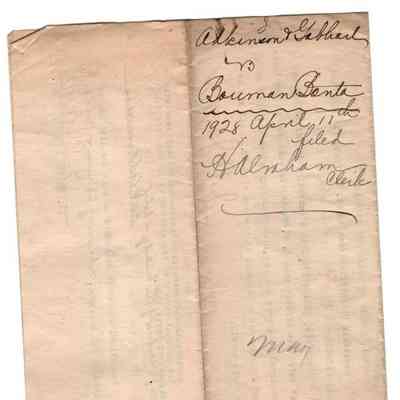 Adkinson & Gabhart
vs
Bowman Bonta
1928 April 11th
filed
Clerk
May